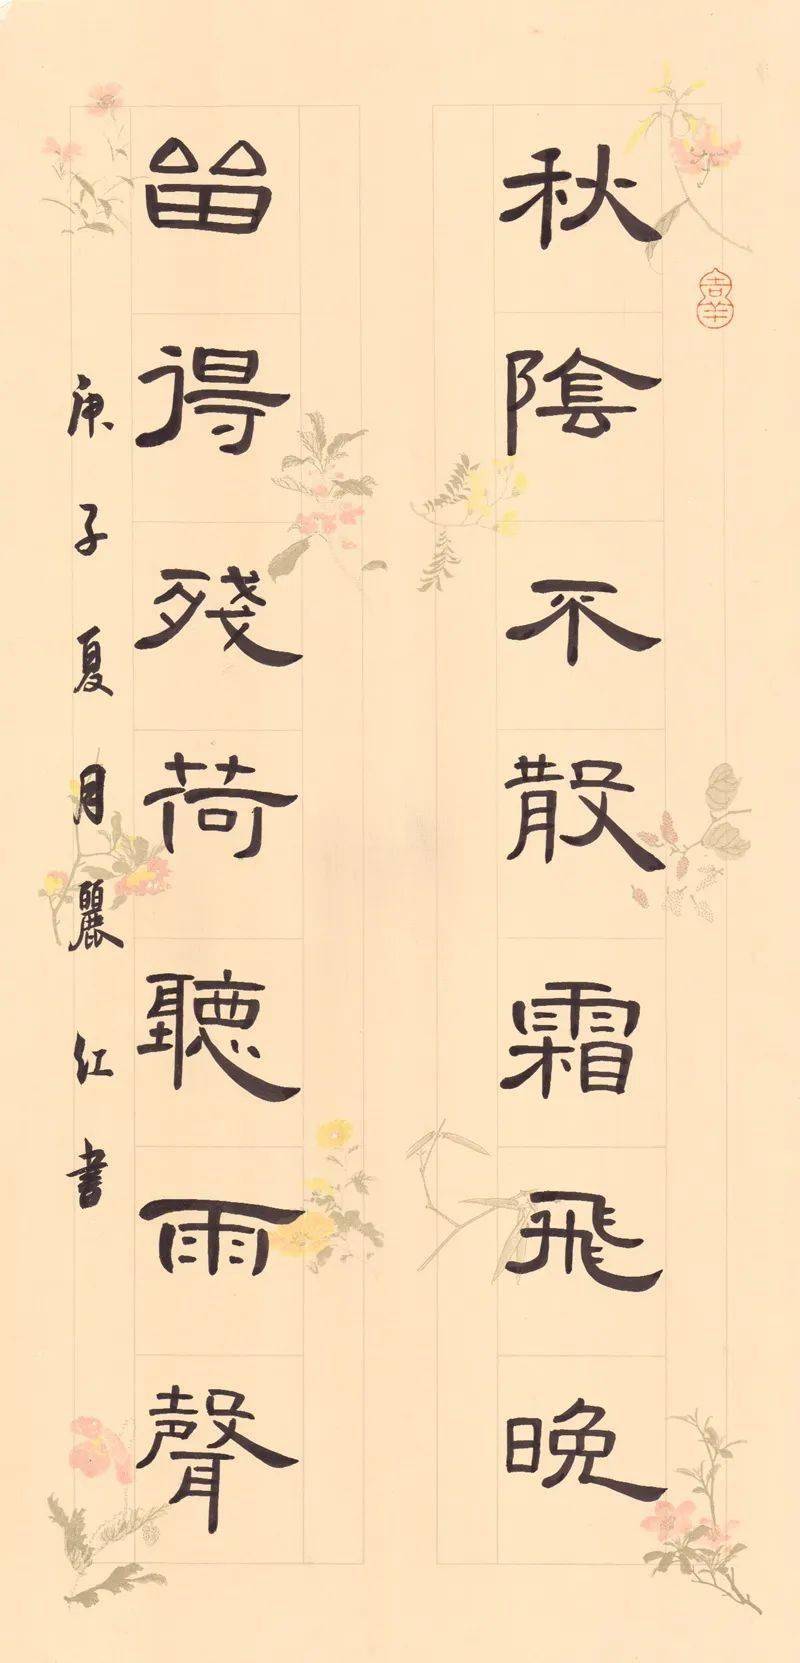 吉羊
秋陰不散霜飛晚
留得殘荷聽雨聲
庚子夏月麗红書